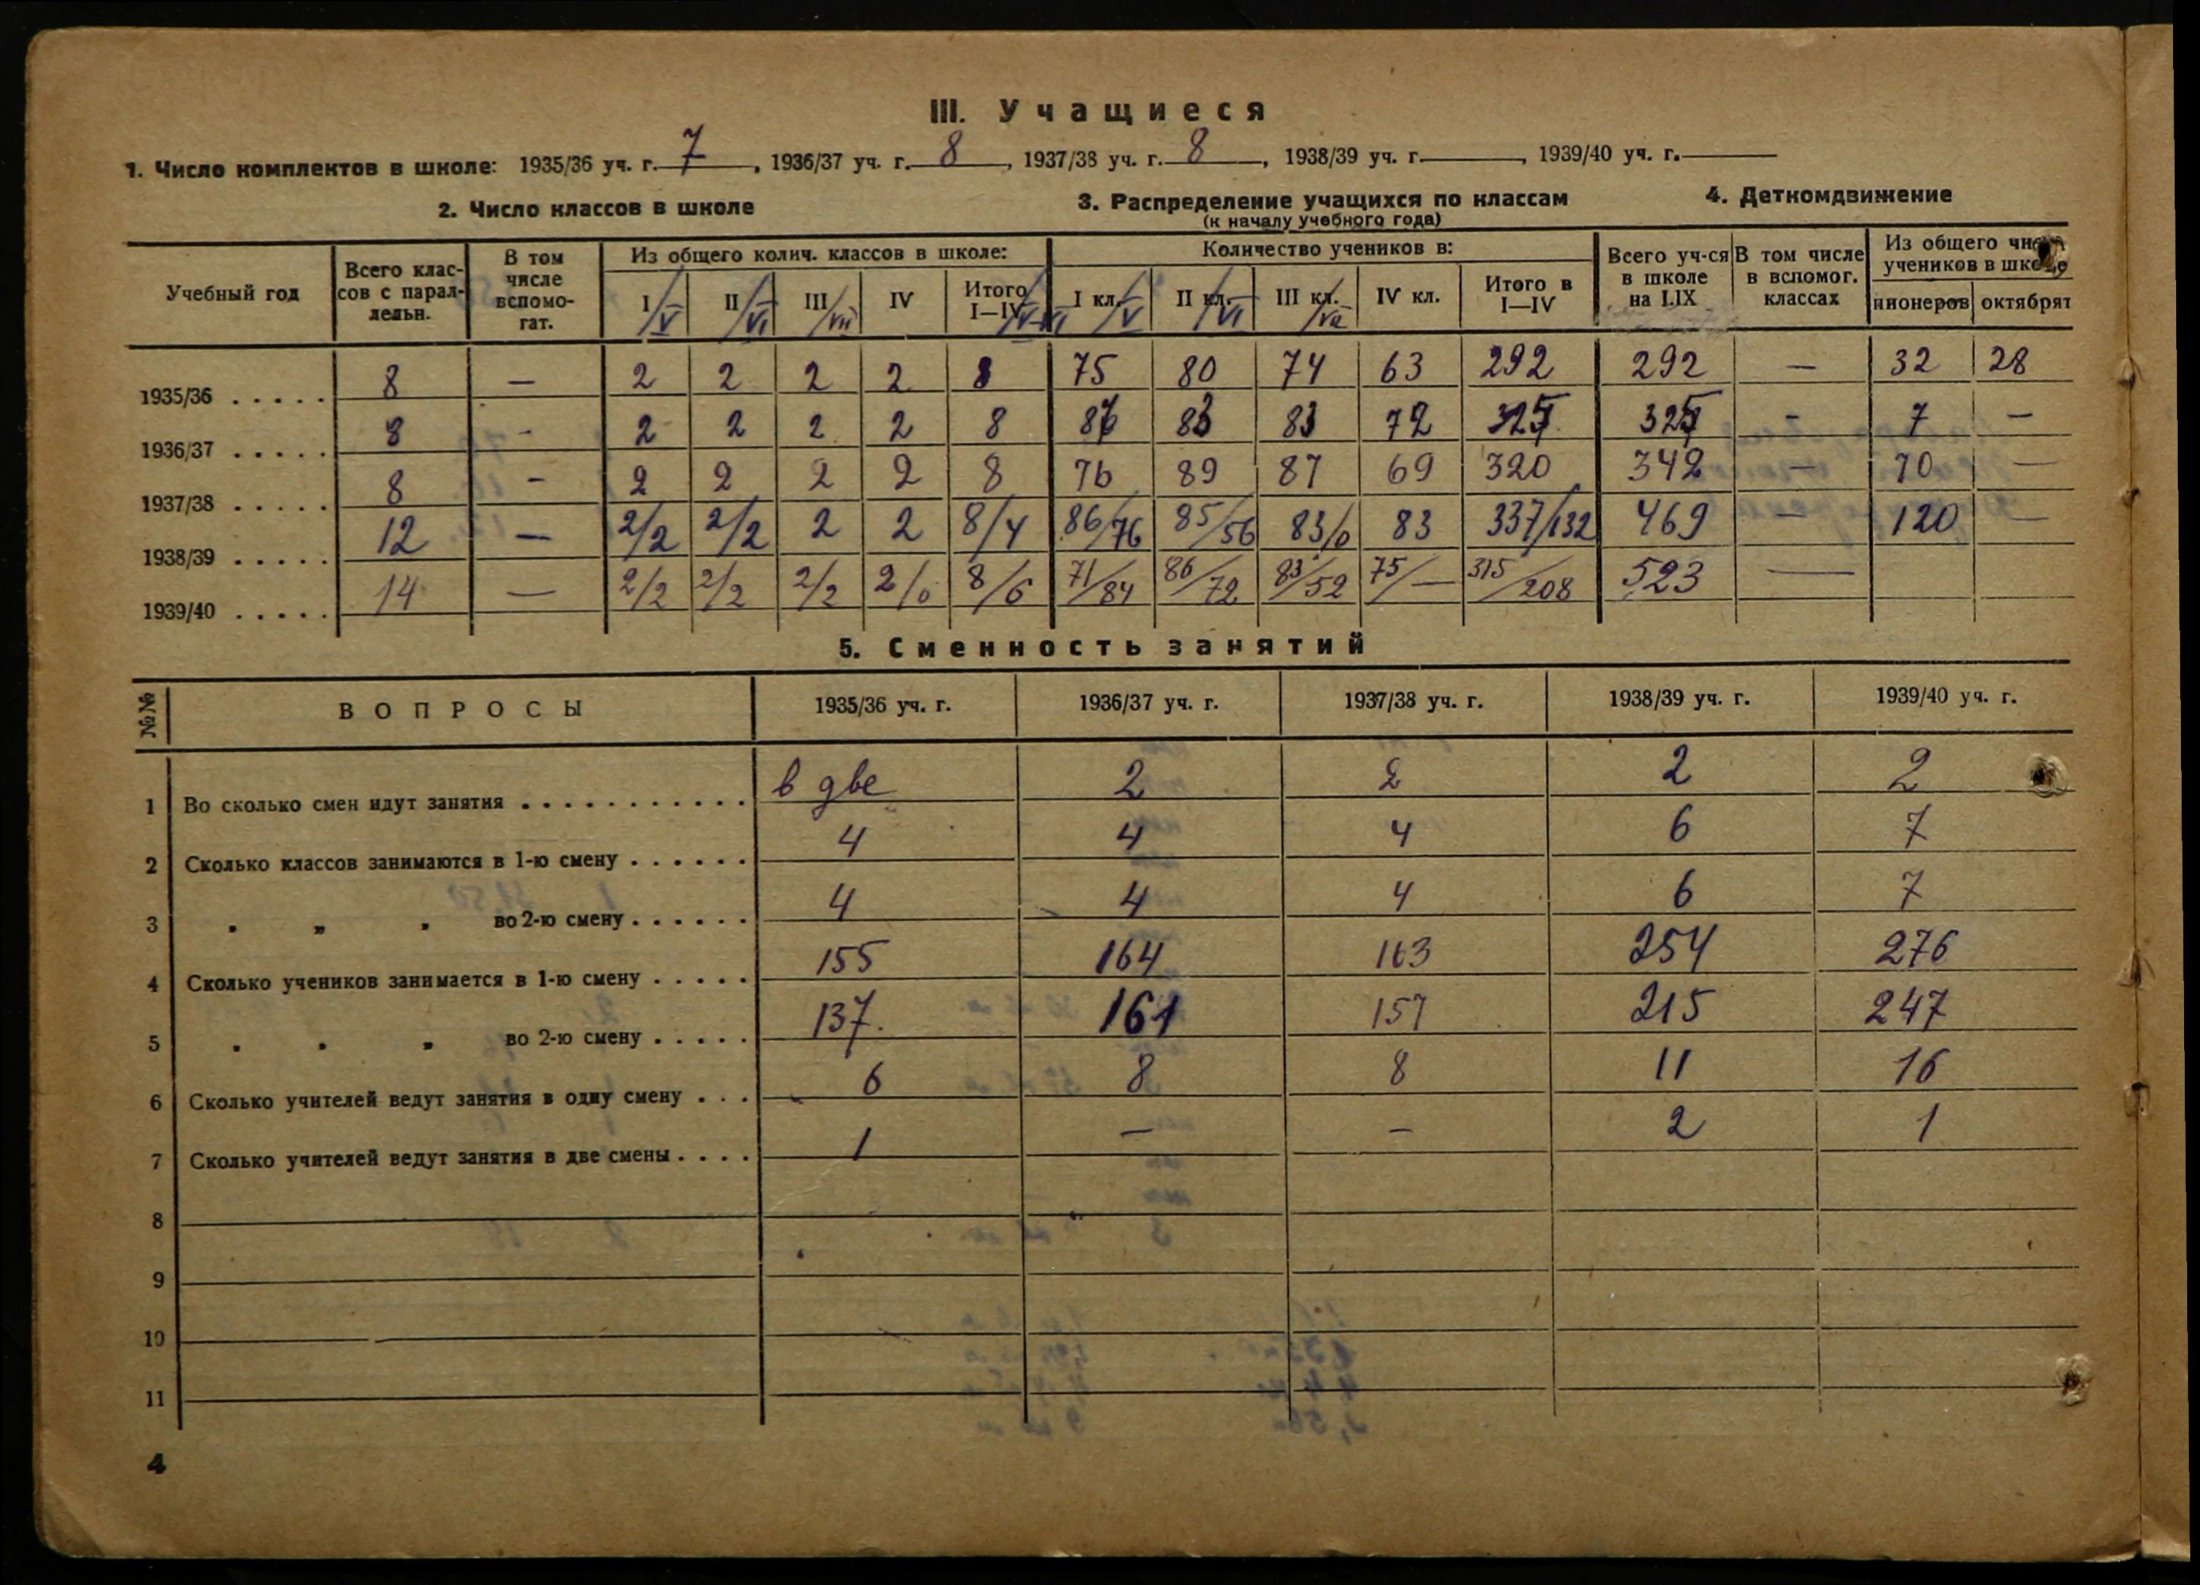 III. Учащиеся
1. Число комплектов в школе: 1935/36 уч. г. 7, 1936/37 уч. г. 8, 1937/38 уч. г. 8, 1938/39 уч. г. , 1939/40 уч. г.
2. Число классов в школе 3. Распределение учащихся по классам 4. Деткомдвижение
(к началу учебного года)
Учебный год Всего классов с параллельн. В том числе вспомогат. Из общего колич. классов в школе: Количество учеников в: Всего уч-ся в школе на 1.IX В том числе в вспомог. классах Из общего числа учеников в школе
I/V II/VI III/VII IV Итого I—IV I кл./V II кл./VI III кл./VII IV кл. Итого в I—IV пионеров октябрят
1935/36 . . . . . 8 — 2 2 2 2 8 75 80 74 63 292 292 — 32 28
1936/37 . . . . . 8 - 2 2 2 2 8 83 83 72 325 325 - 7 —
1937/38 . . . . . 8 - 2 2 2 2 8 76 89 87 69 320 342 — 70 —
1938/39 . . . . . 12 — 2/2 2/2 2 2 8/4 86/76 85/56 83/0 83 337/132 469 — 120 —
1939/40 . . . . . 14 — 2/2 2/2 2/2 2/0 8/6 71/84 86/72 83/52 75/— 315/208 523 —
5. Сменность занятий
№№ ВОПРОСЫ 1935/36 уч. г. 1936/37 уч. г. 1937/38 уч. г. 1938/39 уч. г. 1939/40 уч. г.
1 Во сколько смен идут занятия . . . . . . . . . . . в две 2 2 2 2
2 Сколько классов занимаются в 1-ю смену . . . . . . 4 4 4 6 7
3 „ „ „ во 2-ю смену . . . . . . 4 4 4 6 7
4 Сколько учеников занимается в 1-ю смену . . . . . 155 164 163 254 276
5 „ „ „ во 2-ю смену . . . . . 137. 161 157 215 247
6 Сколько учителей ведут занятия в одну смену . . . 6 8 8 11 16
7 Сколько учителей ведут занятия в две смены . . . . 1 — — 2 1
8
9
10
11
4